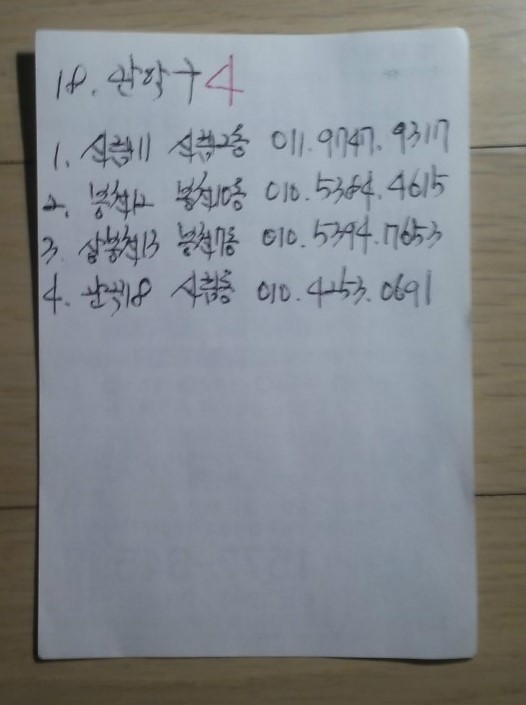 18. 관악구 4
1. 신림11 신림2동 011.9747.9317
2. 봉천12 봉천10동 010.5364.4615
3. 상봉천13 봉천7동 010.5394.7653
4. 관악18 신림동 010.4253.0691